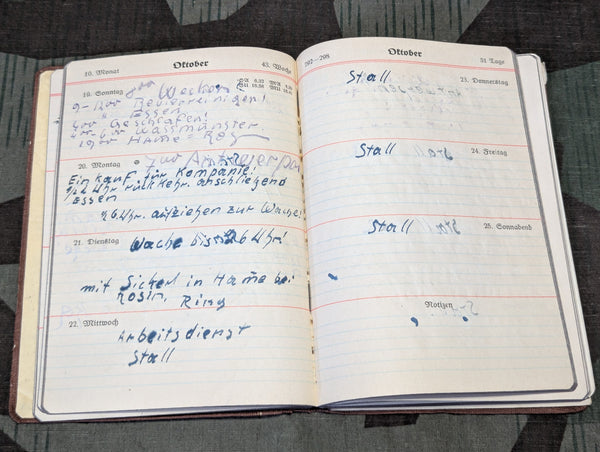 10. Monat Oktober 43. Woche
19. Sonntag 700 Wecken
9-1200 Revierreinigen!
" Essen
Geschlafen!
Waasmünster
1900 Hame =
20. Montag 700
Einkauf für Kompanie!
½2 Uhr rückkehr. anschliessend
Essen
½6 Uhr. aufziehen zur Wache!
21. Dienstag Wache bis ½6 Uhr!
mit Sickerl in Hame bei
Rosin, Riny
22. Mittwoch
Arbeitsdienst
Stall
292—298 Oktober 31 Tage
Stall 23. Donnerstag
Stall 24. Freitag
Stall 25. Sonnabend
Notizen